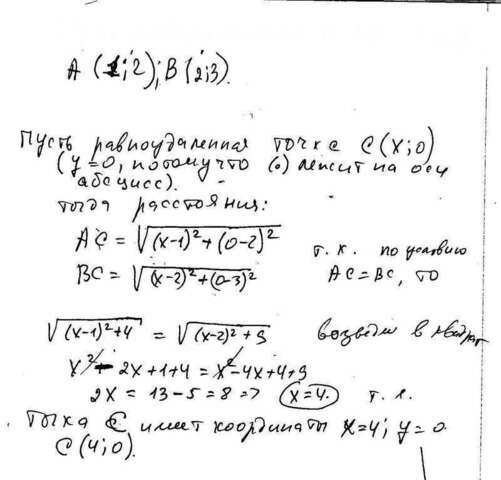 A (1;2); B (2;3).
Пусть равноудаленная точка C(x;0)
(y=0, потому что (·) лежит на оси
абсцисс).
тогда расстояния:
AC = √((x-1)²+(0-2)²)
BC = √((x-2)²+(0-3)²)
т.к. по условию
AC=BC, то
√((x-1)²+4) = √((x-2)²+9) возведем в квадрат
x²-2x+1+4=x²-4x+4+9
2x=13-5=8 => x=4. т.е.
точка C имеет координаты x=4; y=0
C(4;0).